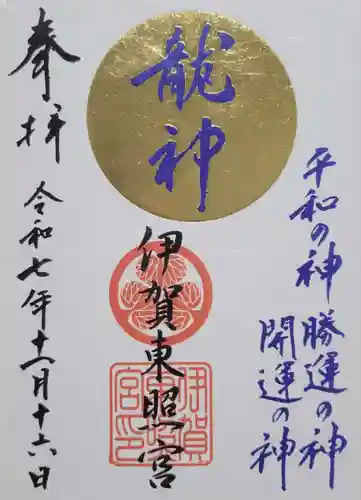 平和の神
勝運の神
開運の神
龍神
伊賀東照宮
伊賀東照宮印
奉拝
令和七年十一月十六日